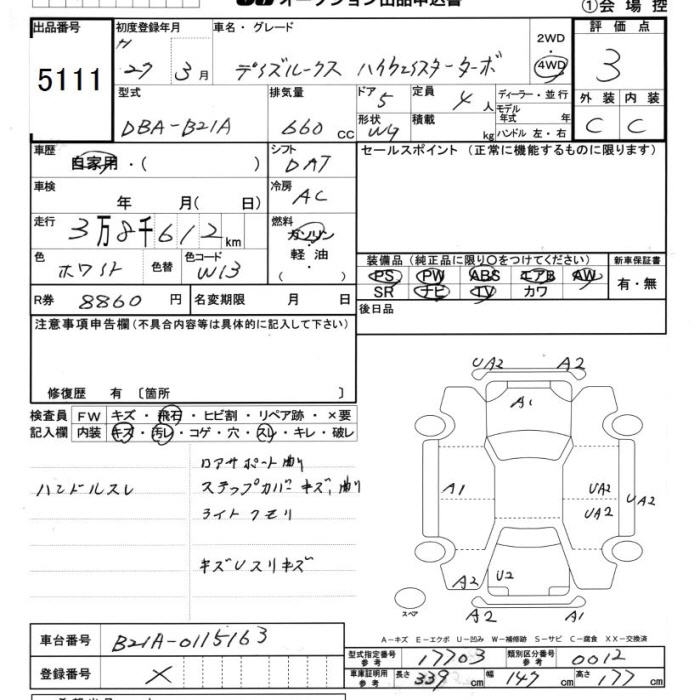 オークション出品申込書 ①会場控
出品番号 初度登録年月 車名・グレード 2WD 評価点
5111 H 27 3月 デイズルークス ハイウェイスターターボ 4WD 3
型式 排気量 ドア 5 定員 4人 ディーラー・並行 外装 内装
モデル年式 年
DBA-B21A 660CC 形状 W9 積載 kg ハンドル 左・右 C C
車歴 自家用・( ) シフト DAT セールスポイント (正常に機能するものに限ります)
車検 年 月( 日) 冷房 AC
走行 3万8千612km 燃料 ガソリン・軽油・( )
色 ホワイト 色替 色コード W13
装備品(純正品に限り○をつけてください) 新車保証書
PS PW ABS エアB AW 有・無
SR ナビ TV カワ
R券 8860円 名変期限 月 日 後日品
注意事項申告欄(不具合内容等は具体的に記入して下さい)
修復歴 有 〔箇所 〕
検査員 FW キズ・飛石・ヒビ割・リペア跡・×要
記入欄 内装 キズ・汚レ・コゲ・穴・スレ・キレ・破レ
ロアサポート曲り
ハンドルスレ ステップカバーキズ、曲り
ライトクモリ
キズUスリキズ
UA2 A2
A1
A1 UA2 UA2
UA2
A2 U2
スペア A2 A1
A-キズ E-エクボ U-凹み W-補修跡 S-サビ C-腐食 XX-交換済
車台番号 B21A-0115163
型式指定番号 参考 17703 類別区分番号 参考 0012
登録番号 ×
車庫証明用 参考 長さ 339cm 幅 147cm 高さ 177cm